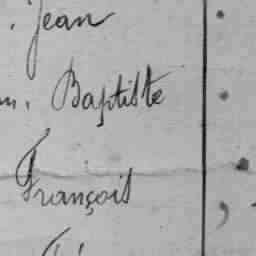 Jean
Baptiste
François